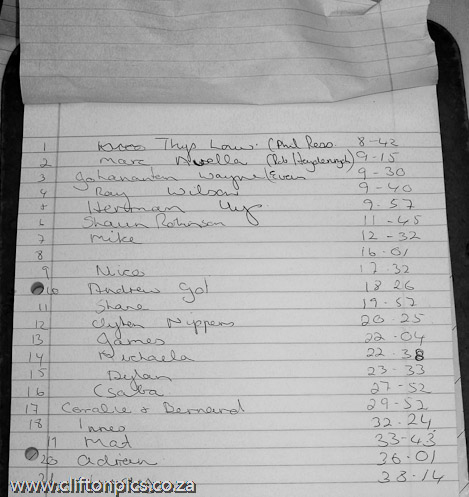 1 Thys Louw (Phil Ross 8-42
2 Marc Avella (Rob Haydenrych) 9-15
3 Gotananten Wayne/Evan 9-30
4 Ray Wilson 9-40
Herman Uys 9.57
6 Shaun Rohnson 11-45
7 Mike 12-32
8 16.01
9 Nico 17.32
10 Andrew Gol 18 26
11 Shane 19-57
12 Clyton Nippers 20-25
13 James 22.04
14 Michaela 22.38
15 Dylan 23-33
16 Csaba 27-52
17 Coralie & Bernard 29-52
18 Innes 32.24
19 Mat 33-43
20 Adrian 36.01
21 38-14
www.cliftonpics.co.za